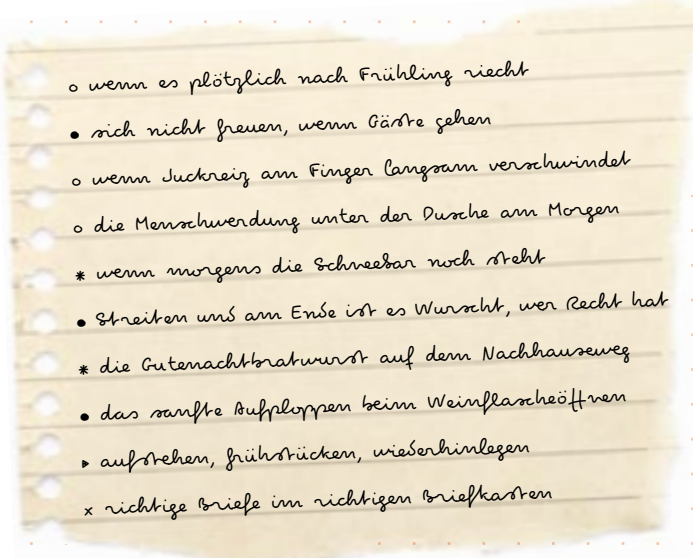 o wenn es plötzlich nach Frühling riecht
• sich nicht freuen, wenn Gäste gehen
o wenn Juckreiz am Finger langsam verschwindet
o die Menschwerdung unter der Dusche am Morgen
* wenn morgens die Schneebar noch steht
• Streiten und am Ende ist es Wurscht, wer Recht hat
* die Gutenachtbratwurst auf dem Nachhauseweg
• das sanfte Aufploppen beim Weinflascheöffnen
▸ aufstehen, frühstücken, wiederhinlegen
x richtige Briefe im richtigen Briefkasten